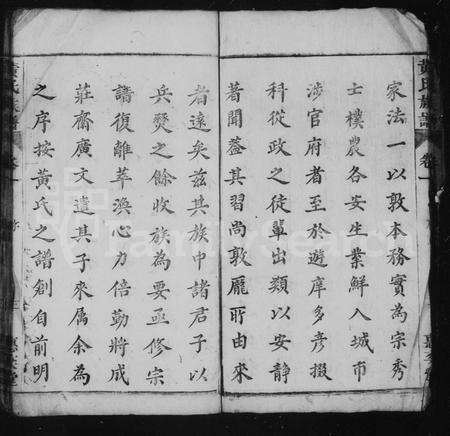 黃氏族譜 卷一
家法一以敦本務實為宗秀
士樸農各安生業鮮入城市
涉官府者至於遊庠多彥掇
科從政之徒輩出類以安靜
著聞蓋其習尚敦龐所由來
者遠矣茲其族中諸君子以
兵燹之餘收族為要亟修宗
譜復離萃渙心力倍勤將成
莊齋廣文遣其子來屬余為
之序按黃氏之譜創自前明
黃氏族譜 卷一 序
FamilySearch